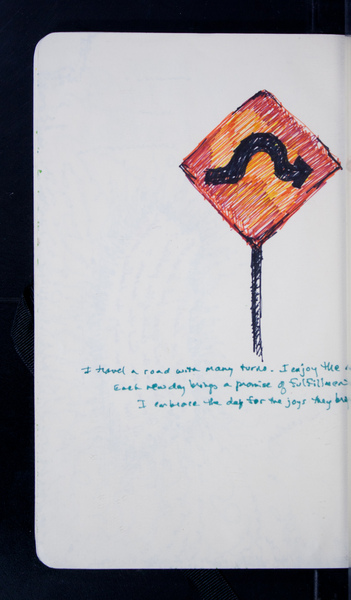 I travel a road with many turns. I enjoy the
Each new day brings a promise of fulfillment
I embrace the day for the joys they